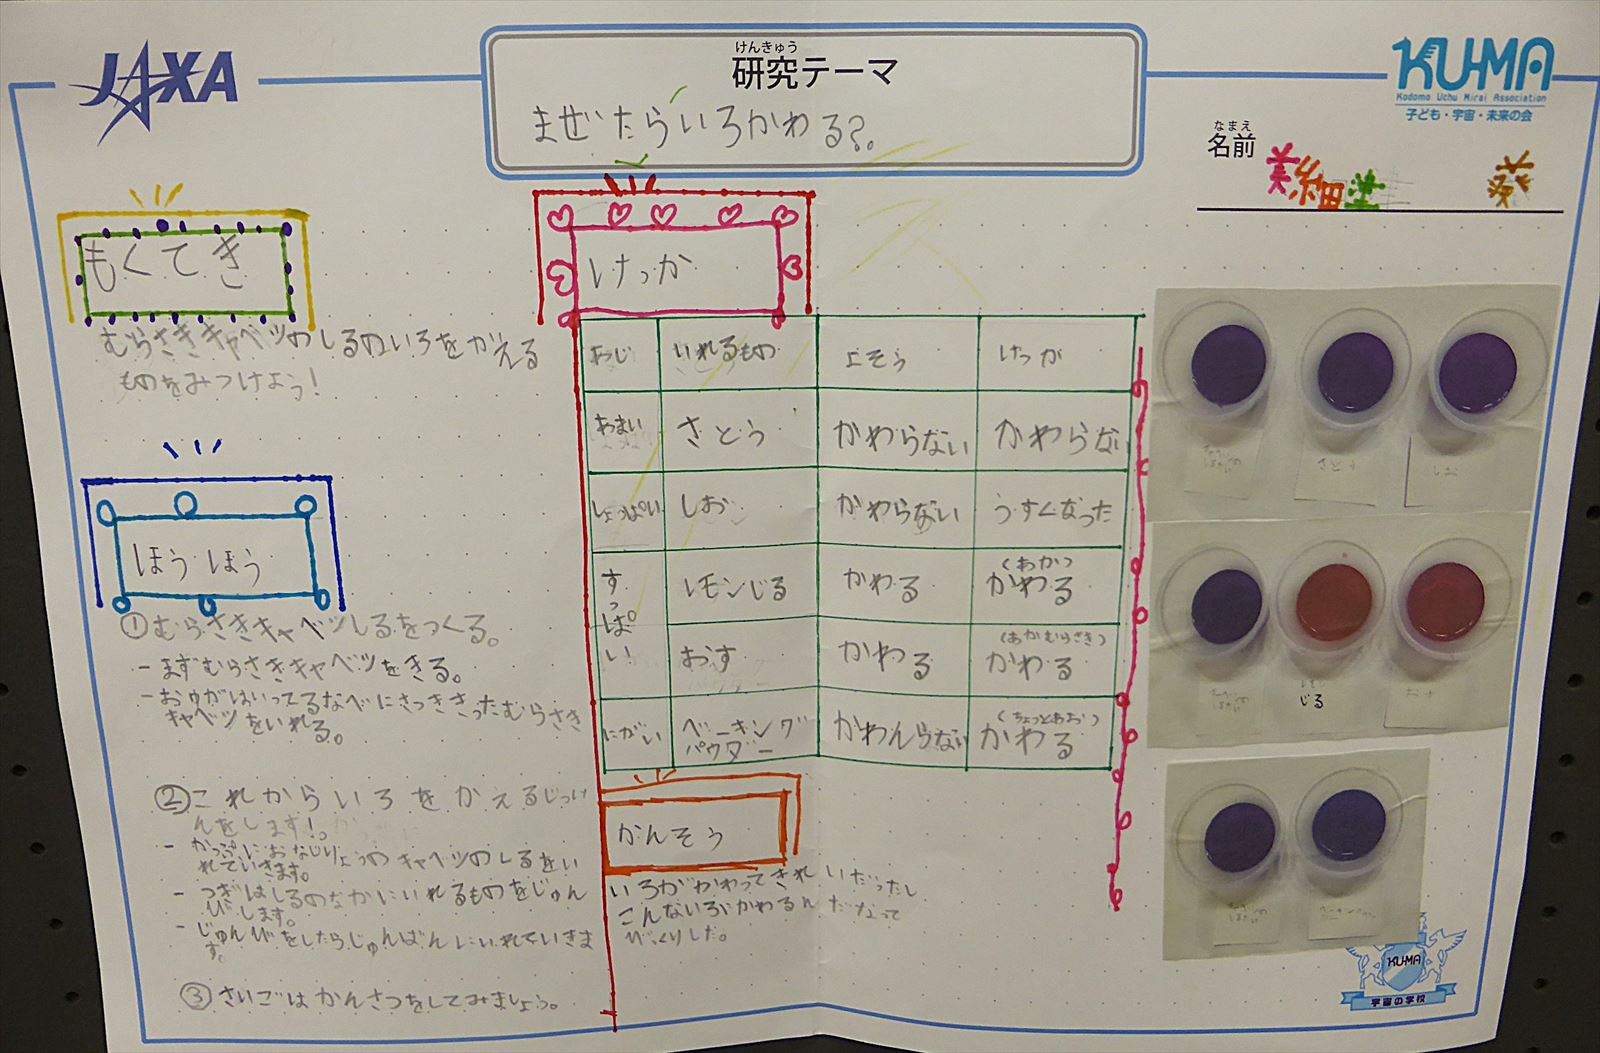 JAXA
けんきゅう
研究テーマ
まぜたらいろかわる?。
KUMA
Kodomo Uchu Mirai Association
子ども・宇宙・未来の会
なまえ
名前
もくてき
むらさきキャベツのしるのいろをかえる
ものをみつけよう!
ほうほう
①むらさきキャベツしるをつくる。
-まずむらさきキャベツをきる。
-おゆがはいってるなべにさっききったむらさき
キャベツをいれる。
②これからいろをかえるじっけ
んをします!。
-かっぷにおなじりょうのキャベツのしるをい
れていきます。
-つぎはしるのなかにいれるものをじゅん
びします。
-じゅんびをしたらじゅんばんにいれていきま
す。
③さいごはかんさつをしてみましょう。
けっか
あじ いれるもの よそう けっか
あまい さとう かわらない かわらない
しょっぱい しお かわらない うすくなった
すっぱい レモンじる かわる (あか) かわる
おす かわる (あかむらさき) かわる
にがい ベーキングパウダー かわんらない (ちょっとあお) かわる
かんそう
いろがかわってきれいだったし
こんないろがかわるんだなって
びっくりした。
さとう
しお
じる
KUMA
宇宙の学校